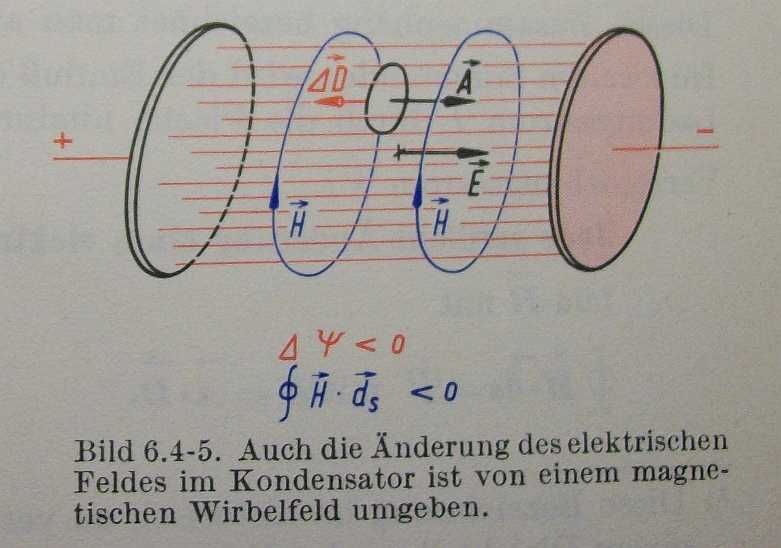 + ΔD⃗ A⃗ −
E⃗
H⃗ H⃗
Δ Ψ < 0
∮ H⃗ · d⃗s < 0
Bild 6.4-5. Auch die Änderung des elektrischen
Feldes im Kondensator ist von einem magne-
tischen Wirbelfeld umgeben.